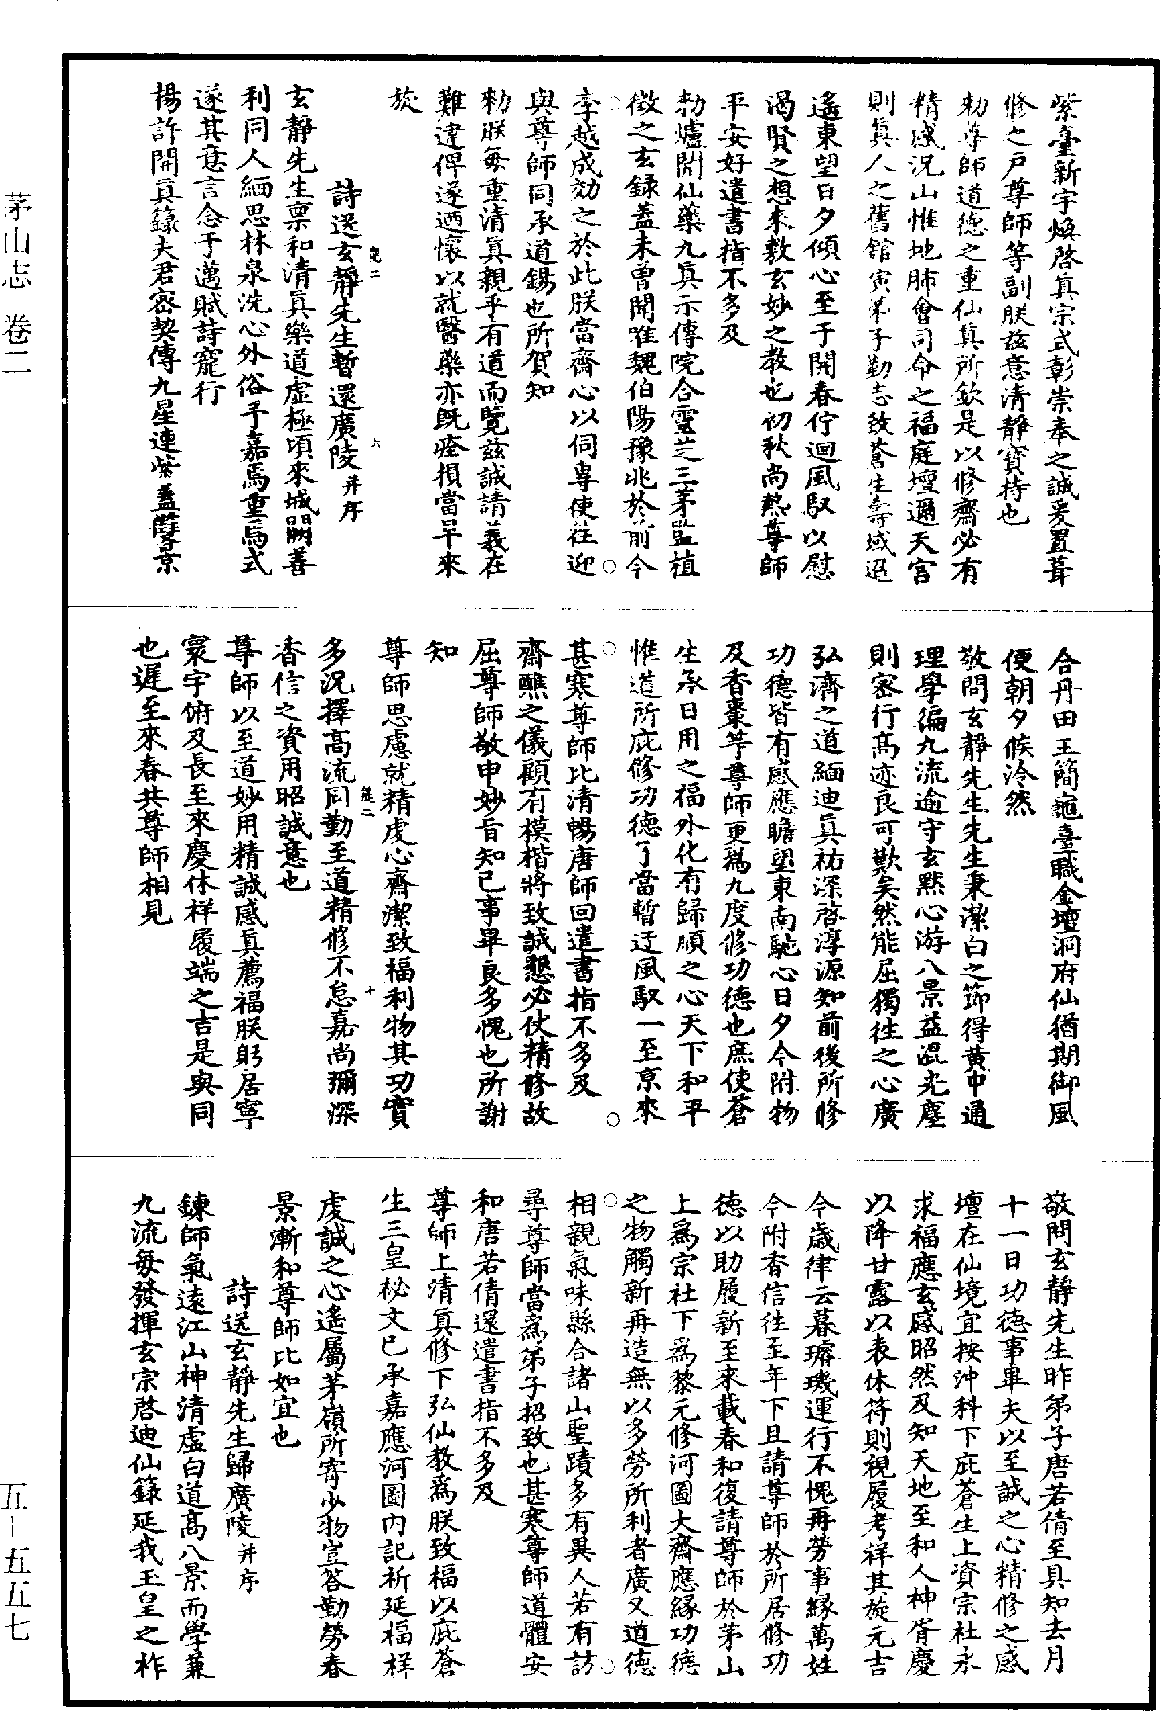 紫臺新宇煥啓真宗式彰崇奉之誠爰置葺
修之戶尊師等副朕茲意清靜寶持也
勑尊師道德之重仙真所欽是以修齋必有
精感況山惟地肺會司命之福庭壇邇天宫
則真人之舊館寅弟子勤志致蒼生壽域迢
遙東望日夕傾心至于開春佇迴風馭以慰
渴賢之想來敷玄妙之教也初秋尚熱尊師
平安好遣書指不多及
勑爐開仙藥九真示傳院合靈芝三茅監植
徵之玄錄蓋未曾聞唯魏伯陽豫兆於前今
李越成効之於此朕當齋心以伺專使往迎
與尊師同承道錫也所賀知
勑朕每重清真親乎有道而覽茲誠請義在
難違俾遂遁懷以就醫藥亦既痊損當早來
旋
詩送玄靜先生暫還廣陵并序
玄靜先生稟和清真樂道虛極頃來城闕善
利同人緬思林泉洗心外俗予嘉焉重焉式
遂其意言念于邁賦詩寵行
楊許開真籙大君密契傳九星連紫蓋雙景
合丹田玉簡龜臺職金壇洞府仙猶期御風
便朝夕候泠然
敬問玄靜先生先生秉潔白之節得黃中通
理學徧九流逾守玄默心游八景益混光塵
則密行高迹良可歎矣然能屈獨往之心廣
弘濟之道緬迪真祐深啓淳源知前後所修
功德皆有感應瞻望東南馳心日夕今附物
及香棗等尊師更為九度修功德也庶使蒼
生承日用之福外化有歸順之心天下和平
惟道所庇修功德了當暫迂風馭一至京來
甚寒尊師比清暢唐師回遣書指不多及
齋醮之儀顧有模楷將致誠懇必仗精修故
屈尊師敬申妙旨知已事畢良多愧也所謝
知
尊師思慮就精虔心齋潔致福利物其功實
多況擇高流同勤至道精修不怠嘉尚彌深
香信之資用昭誠意也
尊師以至道妙用精誠感真薦福朕躬居寧
寰宇俯及長至來慶休祥履端之吉是與同
也遲至來春共尊師相見
敬問玄靜先生昨弟子唐若倩至具知去月
十一日功德事畢夫以至誠之心精修之感
壇在仙境宜按沖科下庇蒼生上資宗社永
求福應玄感昭然及知天地至和人神胥慶
以降甘露以表休符則視履考祥其旋元吉
今歲律云暮璿璣運行不愧再勞事緣萬姓
今附香信往至年下且請尊師於所居修功
德以助履新至來載春和復請尊師於茅山
上為宗社下為黎元修河圖大齋應緣功德
之物觸新再造無以多勞所利者廣又道德
相親氣味懸合諸山聖蹟多有異人若有訪
尋尊師當為弟子招致也甚寒尊師道體安
和唐若倩還遣書指不多及
尊師上清真修下弘仙教為朕致福以庇蒼
生三皇秘文已承嘉應河圖內記祈延福祥
虔誠之心遙屬茅嶺所寄少物豈答勤勞春
景漸和尊師比如宜也
詩送玄靜先生歸廣陵并序
鍊師氣遠江山神清虛白道高八景而學兼
九流每發揮玄宗啓迪仙籙延我玉皇之祚
茅山志 卷二
五-五五七